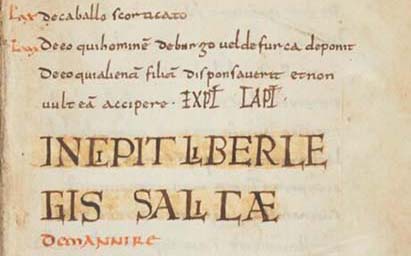 Lxx de caballo scorticato
Lxxi De eo qui hominē de burgo vel de furca deponit
De eo qui alienā filiā disponsaverit et non
vult eā accipere · EXPL CAPL ·
INCIPIT LIBER LE
GIS SALICAE
DE MANNIRE